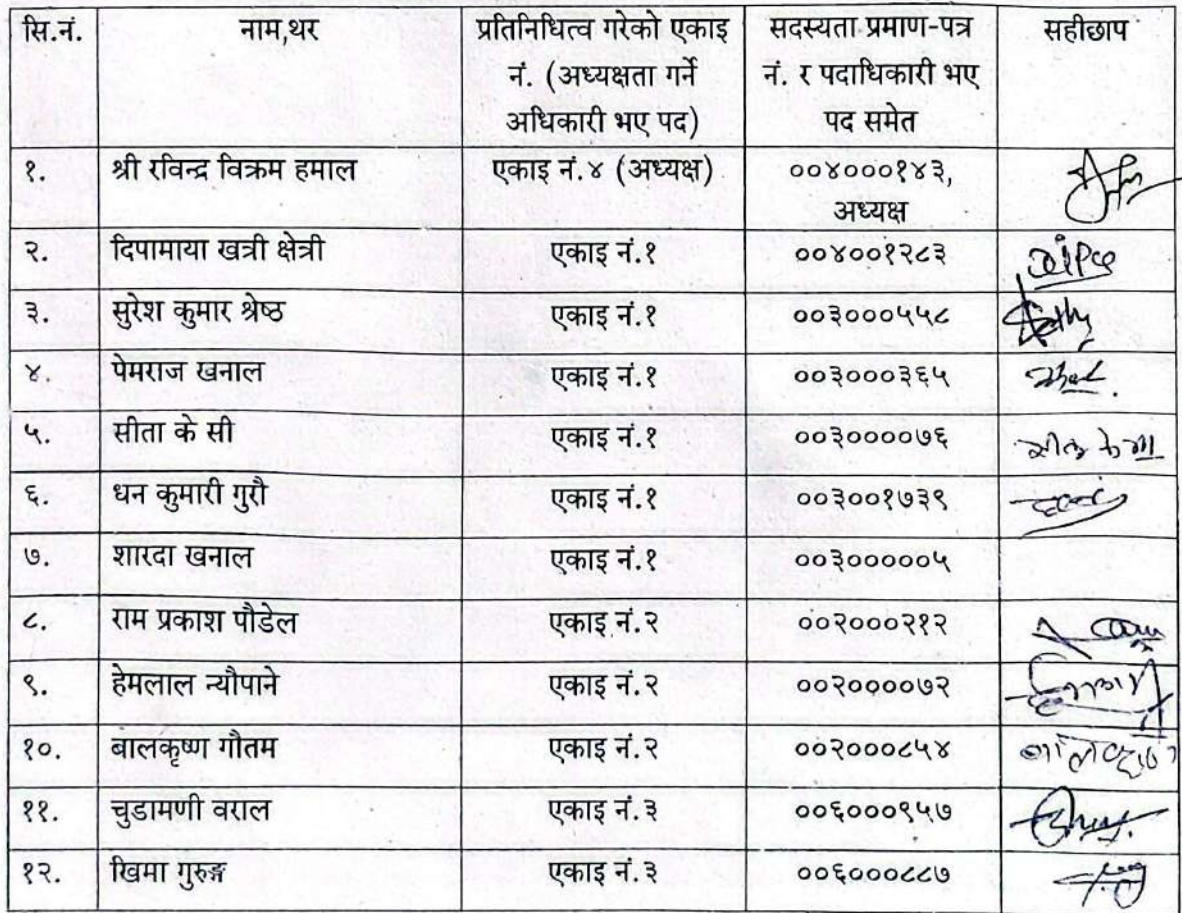 सि.नं. नाम,थर प्रतिनिधित्व गरेको एकाइ सदस्यता प्रमाण-पत्र सहीछाप
नं. (अध्यक्षता गर्ने नं. र पदाधिकारी भए
अधिकारी भए पद) पद समेत
१. श्री रविन्द्र विक्रम हमाल एकाइ नं.४ (अध्यक्ष) ००४०००१४३,
अध्यक्ष
२. दिपामाया खत्री क्षेत्री एकाइ नं.१ ००४००१२८३
३. सुरेश कुमार श्रेष्ठ एकाइ नं.१ ००३०००५५८
४. पेमराज खनाल एकाइ नं.१ ००३०००३६५
५. सीता के सी एकाइ नं.१ ००३००००७६
६. धन कुमारी गुरौ एकाइ नं.१ ००३००१७३९
७. शारदा खनाल एकाइ नं.१ ००३०००००५
८. राम प्रकाश पौडेल एकाइ नं.२ ००२०००२१२
९. हेमलाल न्यौपाने एकाइ नं.२ ००२००००७२
१०. बालकृष्ण गौतम एकाइ नं.२ ००२०००८५४
११. चुडामणी वराल एकाइ नं.३ ००६०००९५७
१२. खिमा गुरुङ्ग एकाइ नं.३ ००६०००८८७